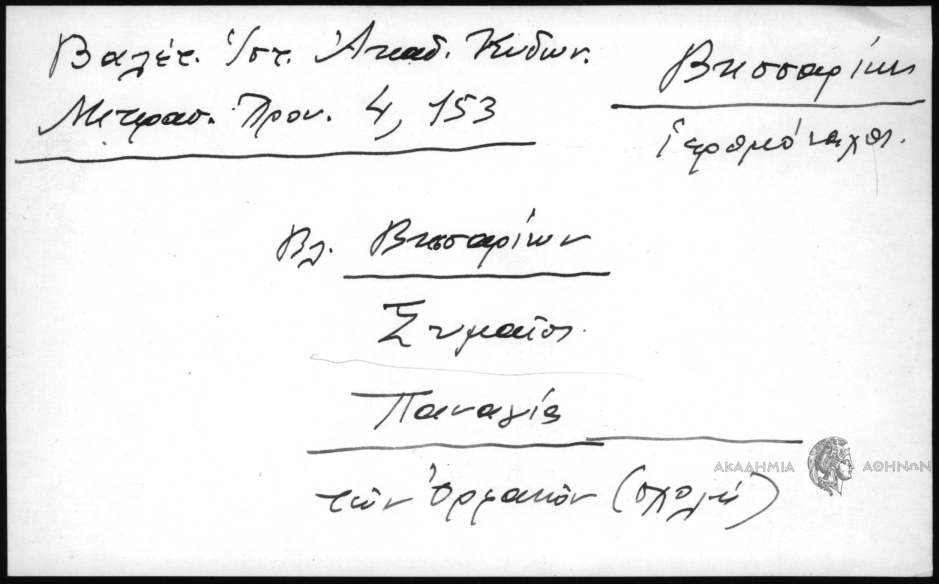 Βαλέτ. Ἱστ. Ἀκαδ. Κυδων.
Μικρασ. Χρον. 4, 153
Βησσαρίων
ἱερομόναχος.
Βλ. Βησσαρίων
Συμαῖος.
Παναγία
τῶν Ὀρφανῶν (σχολή)
ΑΚΑΔΗΜΙΑ ΑΘΗΝΩΝ